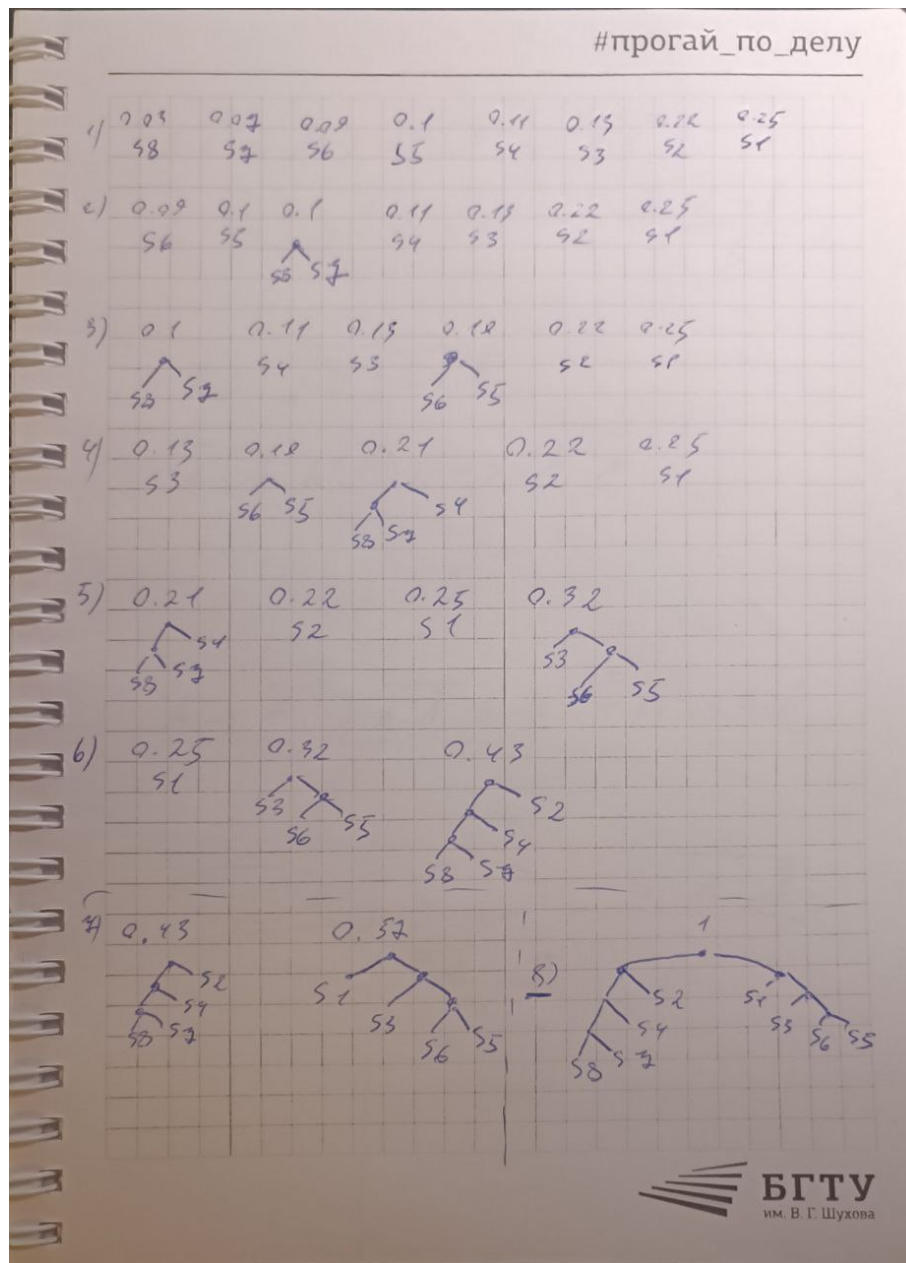 #прогай_по_делу
1) 0.03 0.07 0.09 0.1 0.11 0.13 0.22 0.25
S8 S7 S6 S5 S4 S3 S2 S1
2) 0.09 0.1 0.1 0.11 0.13 0.22 0.25
S6 S5 S4 S3 S2 S1
S8 S7
3) 0.1 0.11 0.13 0.19 0.22 0.25
S4 S3 S2 S1
S8 S7 S6 S5
4) 0.13 0.19 0.21 0.22 0.25
S3 S2 S1
S6 S5 S4
S8 S7
5) 0.21 0.22 0.25 0.32
S2 S1
S4 S3
S8 S7 S6 S5
6) 0.25 0.32 0.43
S1
S3 S2
S6 S5 S4
S8 S7
7) 0.43 0.57
S2 S1
S4 S3
S8 S7 S6 S5
8) 1
S2 S1
S4 S3
S6 S5
S8 S7
БГТУ
им. В. Г. Шухова